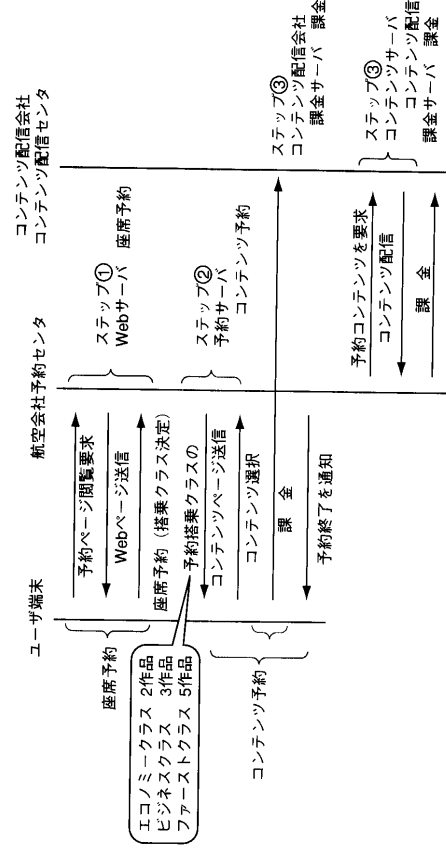 ユーザ端末
航空会社予約センタ
コンテンツ配信会社
コンテンツ配信センタ
座席予約
予約ページ閲覧要求
Webページ送信
座席予約(搭乗クラス決定)
ステップ①
Webサーバ 座席予約
エコノミークラス 2作品
ビジネスクラス 3作品
ファーストクラス 5作品
予約搭乗クラスの
コンテンツページ送信
コンテンツ選択
ステップ②
予約サーバ
コンテンツ予約
コンテンツ予約
課金
ステップ③
コンテンツ配信会社
課金サーバ 課金
予約終了を通知
予約コンテンツを要求
コンテンツ配信
課金
ステップ③
コンテンツサーバ
コンテンツ配信
課金サーバ 課金